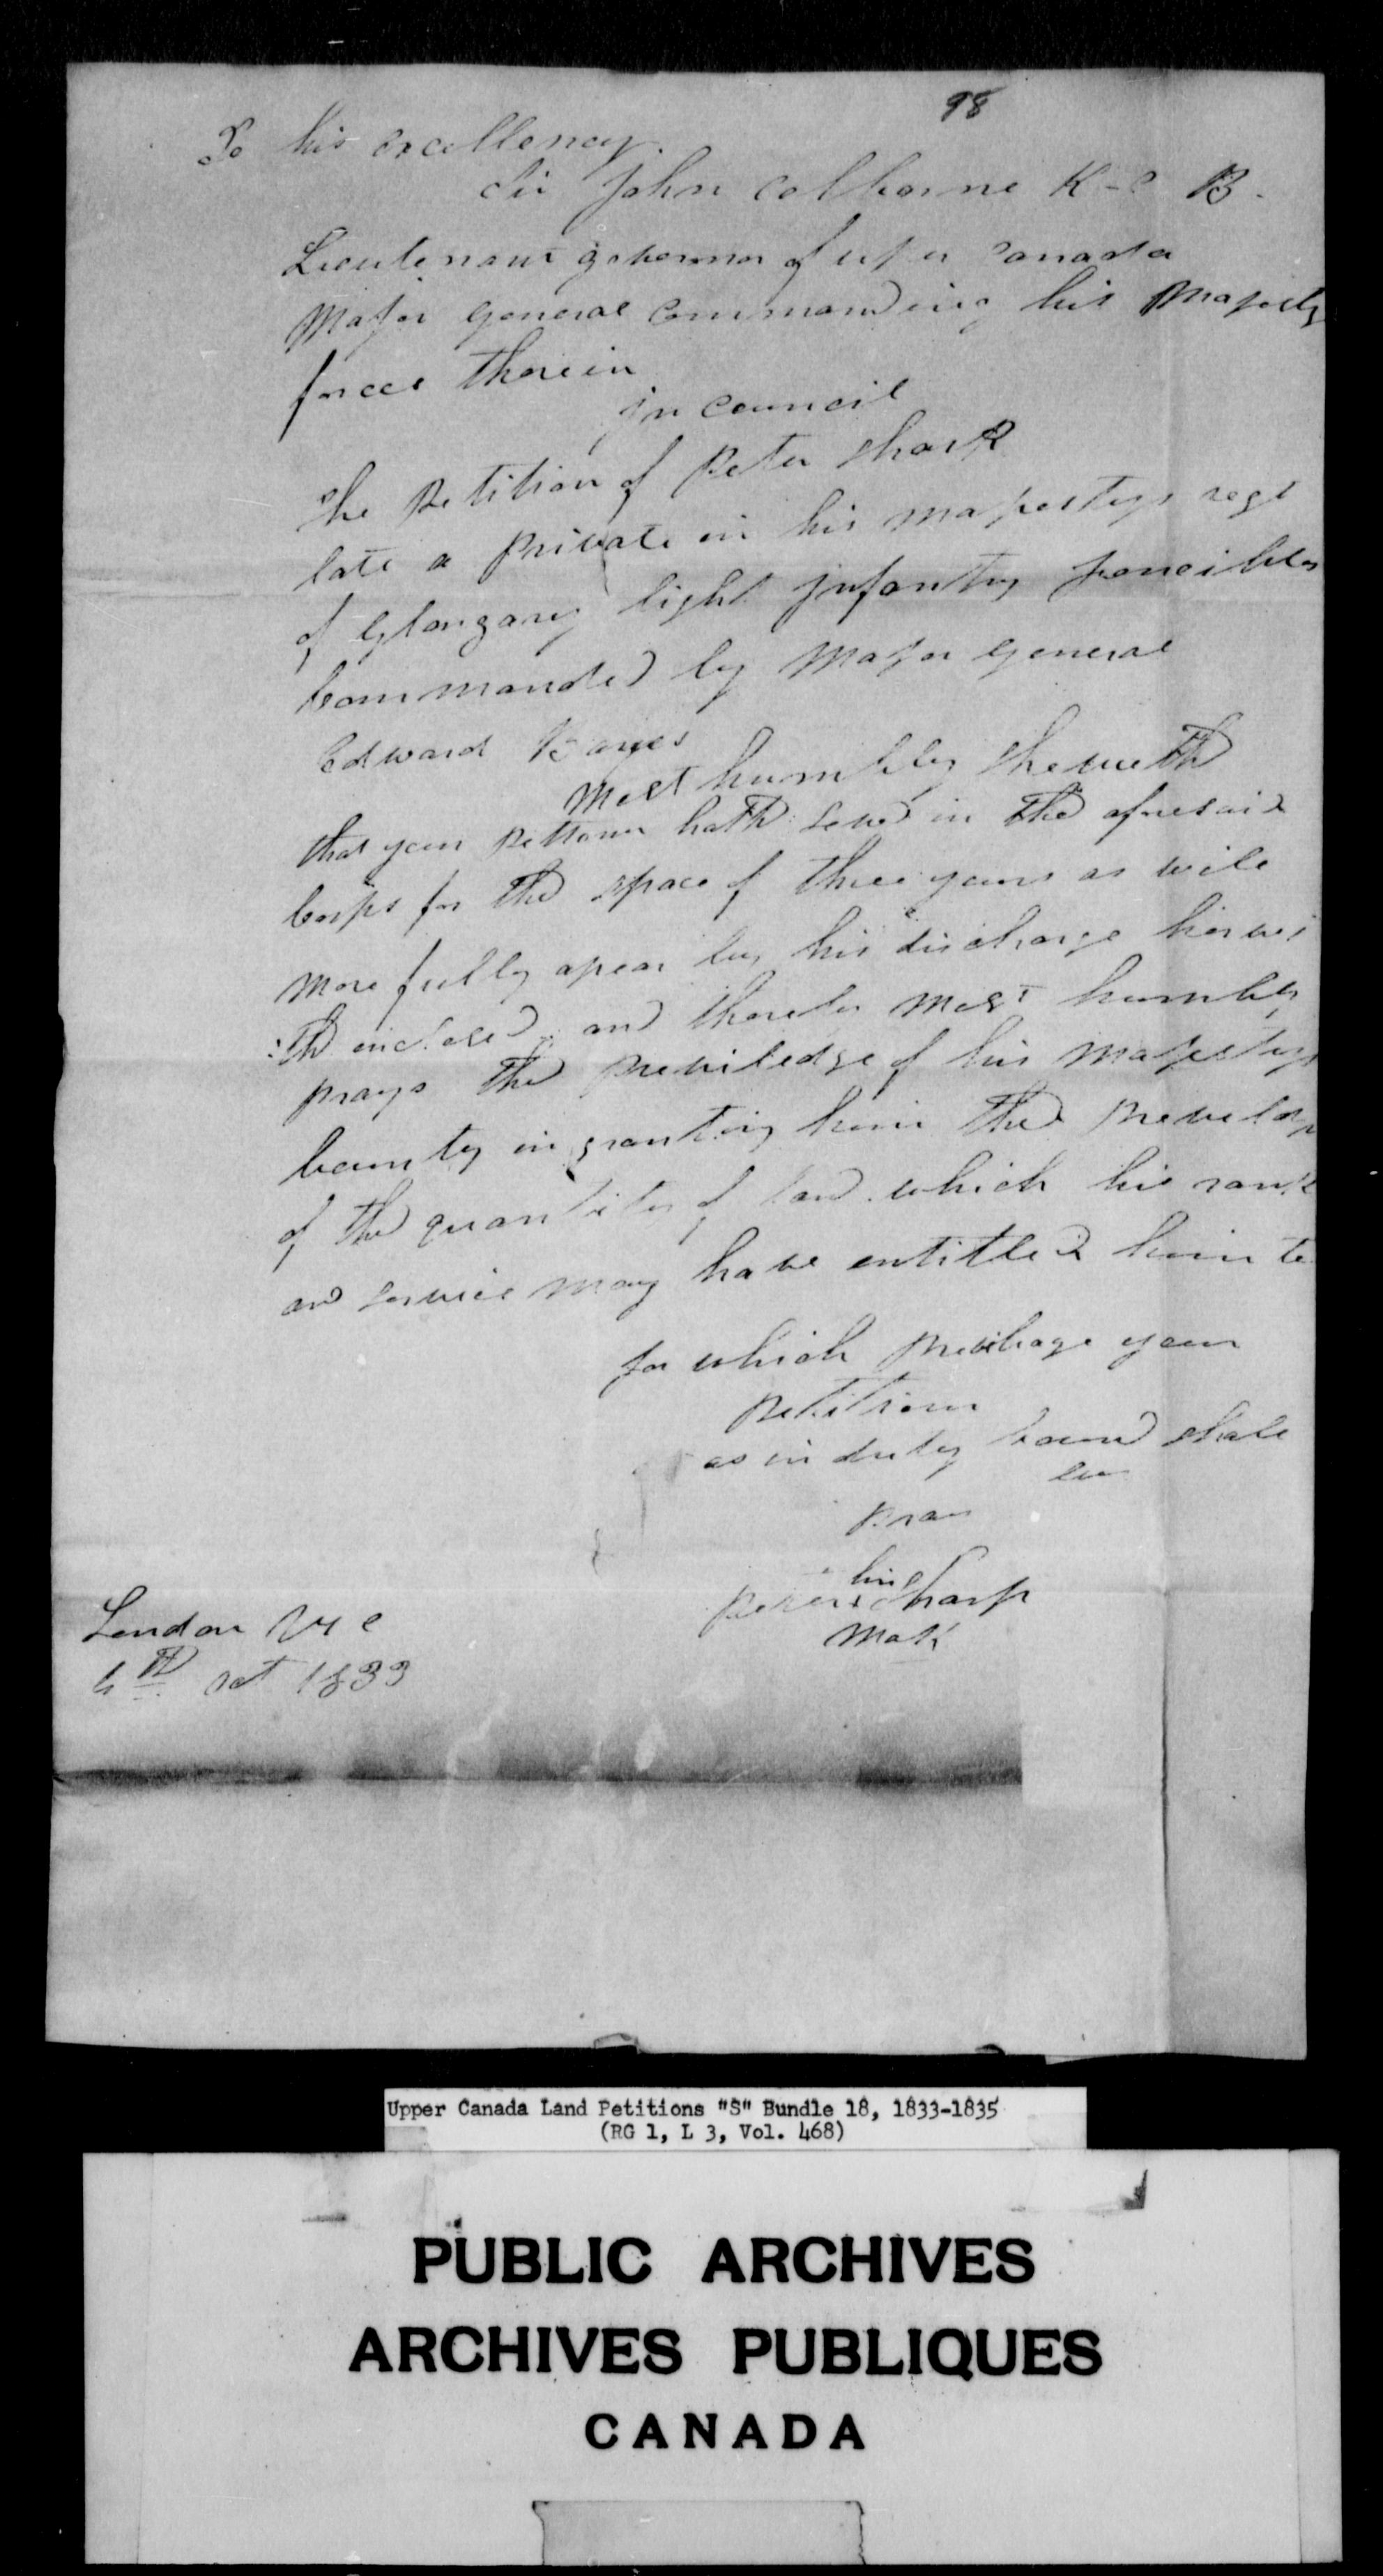 98
To his excellency
Sir John Colborne K-C B.
Lieutenant governor of uper Canada
Major general commanding his Majestys
forces therein
in council
the Petition of Peter Sharp
late a private in his majestys regt
of Glangary light infantry fencibles
Commanded by Major general
Edward Bayes
most humbly sheweth
that your Pettoner hath served in the aforesaid
Corps for the space of three years as will
more fully apear by his discharge herewi
:th enclosed and therefor most humbly
prays the previledge of his majestys
bounty in granting him the
of the quantity of land which his rank
and service may have entitled him to
for which your
Petitioner
as in duty bound shall
ever
pray
his
peter x Sharp
mark
London U C
4th oct 1833
Upper Canada Land Petitions "S" Bundle 18, 1833-1835
(RG 1, L 3, Vol. 468)
PUBLIC ARCHIVES
ARCHIVES PUBLIQUES
CANADA